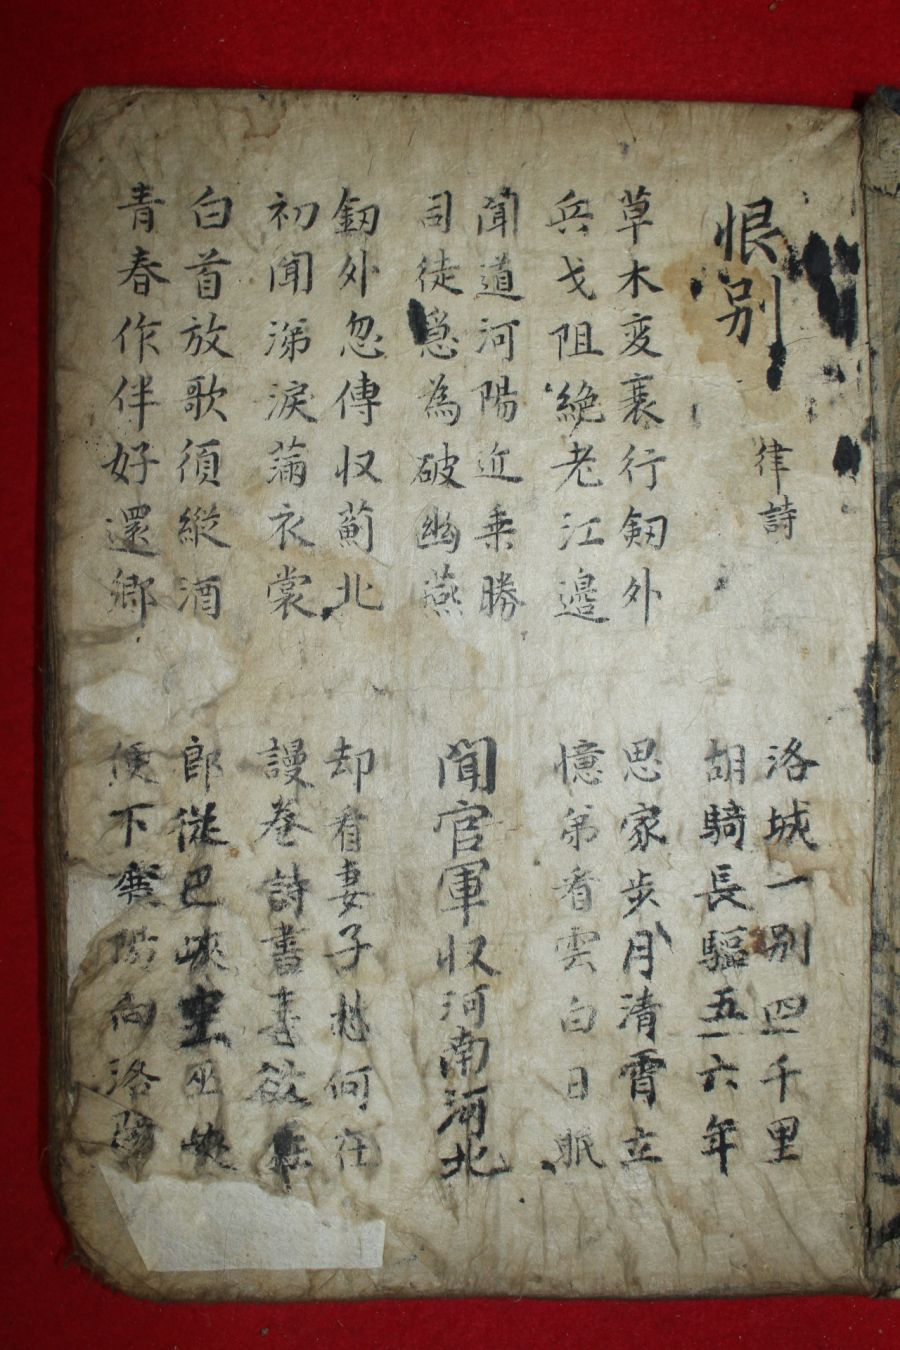 恨别 律詩
洛城一别四千里
胡騎長驅五六年
草木変衰行釼外
兵戈阻絶老江邉
思家步月清霄立
憶弟看雲白日眠
聞道河陽近乗勝
司徒急為破幽燕
聞官軍収河南河北
釼外忽傳収薊北
初聞涕淚滿衣裳
却看妻子愁何在
謾卷詩書喜欲狂
白首放歌須縱酒
青春作伴好還鄉
郎從巴峽穿巫峽
便下襄陽向洛陽